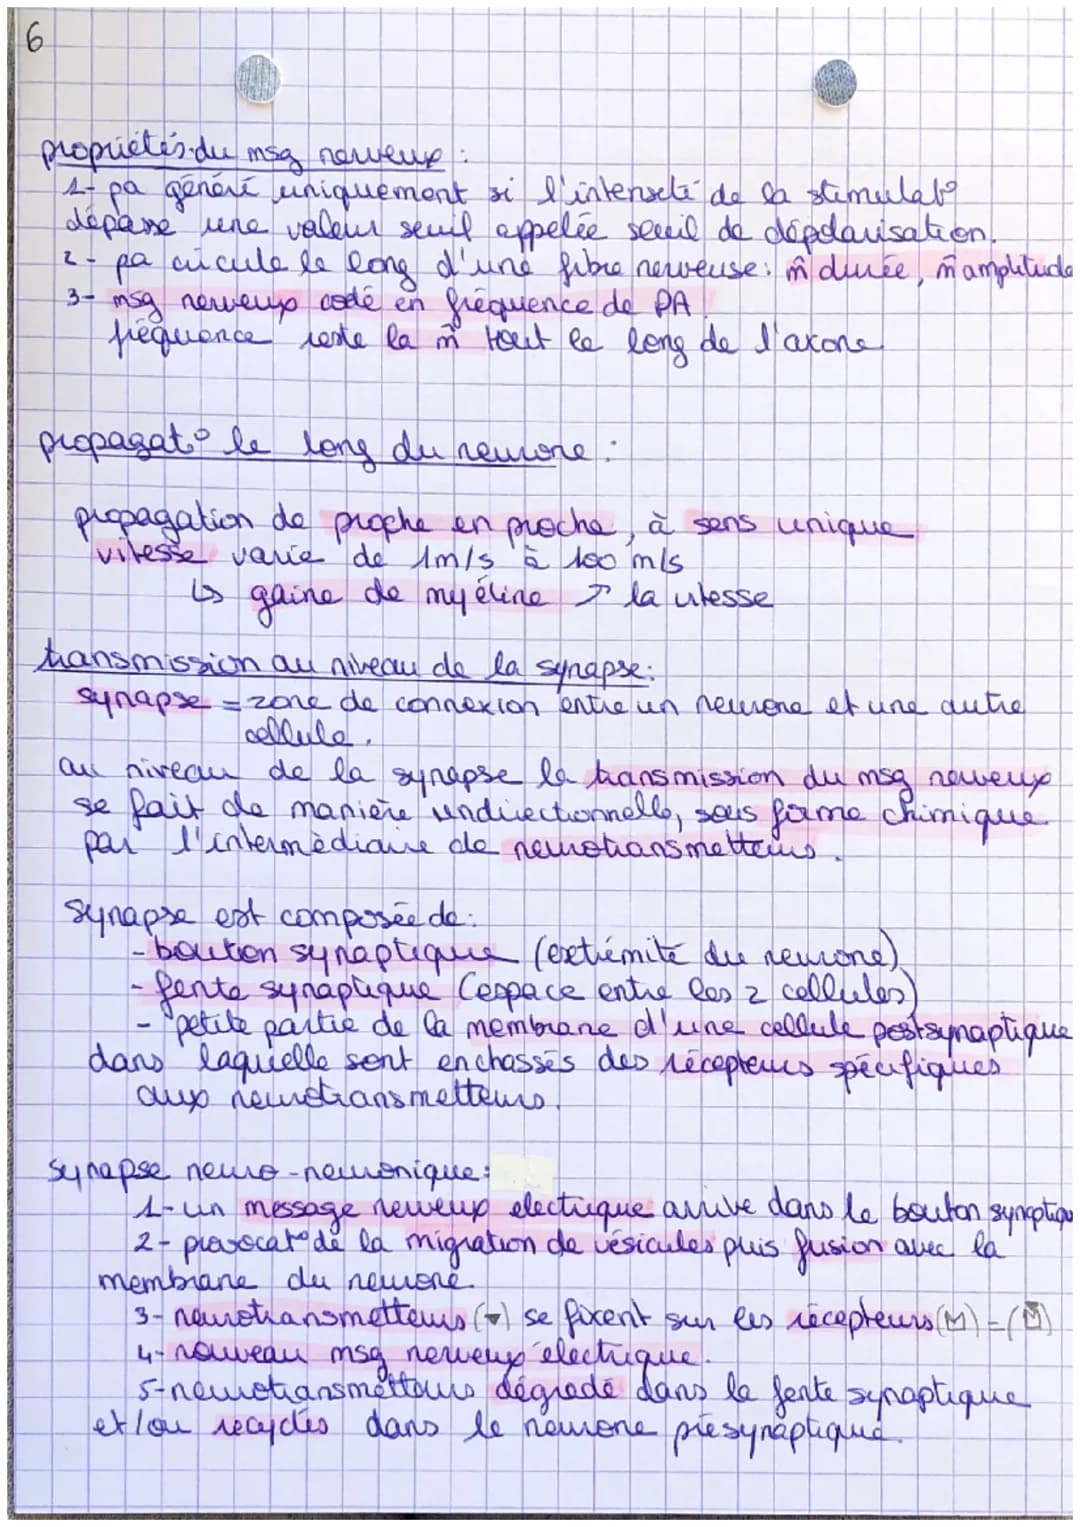 6
propriétés du msg nerveux :
1- pa généré uniquement si l'intenseté de la stimulat°
dépasse une valeur seuil appelée seuil de dépolarisation.
2- pa circule le long d'une fibre nerveuse : m̂ durée, m̂ amplitude
3- msg nerveux codé en fréquence de PA.
fréquence reste la m̂ tout le long de l'axone
propagat° le long du neurone :
propagation de proche en proche, à sens unique
vitesse varie de 1m/s à 100 m/s
↳ gaine de myéline ↗ la vitesse
transmission au niveau de la synapse :
synapse = zone de connexion entre un neurone et une autre
cellule.
au niveau de la synapse la transmission du msg nerveux
se fait de manière undirectionnelle, sous forme chimique
par l'intermédiaire de neurotransmetteurs.
synapse est composée de :
- bouton synaptique (extrémité du neurone)
- fente synaptique (espace entre les 2 cellules)
- petite partie de la membrane d'une cellule postsynaptique
dans laquelle sont enchassés des récepteurs spécifiques
aux neurotransmetteurs.
synapse neuro-neuronique :
1- un message nerveux electrique arrive dans le bouton synaptiqu
2- provocat° de la migration de vésicules puis fusion avec la
membrane du neurone.
3- neurotransmetteurs (▾) se fixent sur les récepteurs (M) = (M̆)
4- nouveau msg nerveux électrique.
5- neurotransmetteurs dégradé dans la fente synaptique
et/ou recyclés dans le neurone présynaptique.